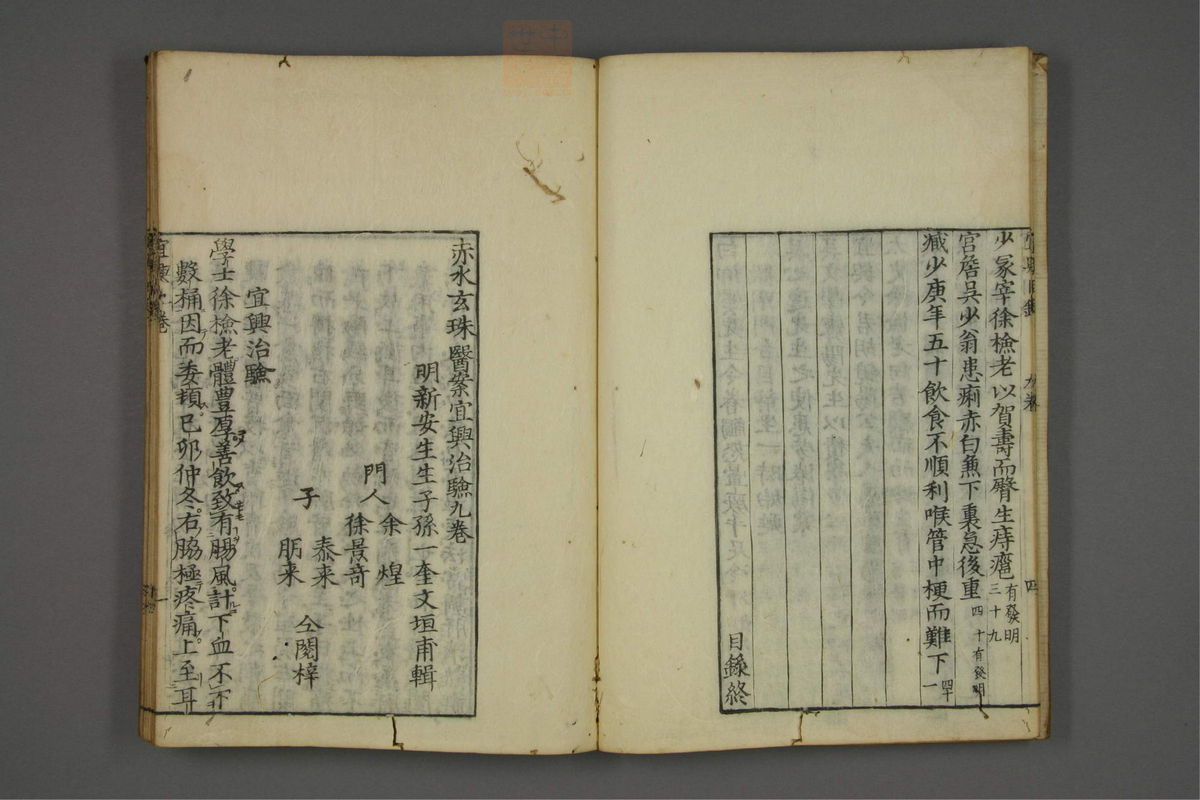 少冢宰徐檢老以賀壽而臀生痔瘡有發明三十九
宮詹吳少翁患痢赤白兼下裏急後重四十有發明
臧少庚年五十飲食不順利喉管中梗而難下四十一
目錄終
赤水玄珠醫案宜興治驗九卷
明新安生生子孫一奎文垣甫輯
門人
余煌
徐景奇
子
泰来
朋来
仝閱梓
宜興治驗
學士徐檢老體豊厚善飲致有腸風計下血不下
數桶因而委頓已卯仲冬右脇極疼痛上至耳